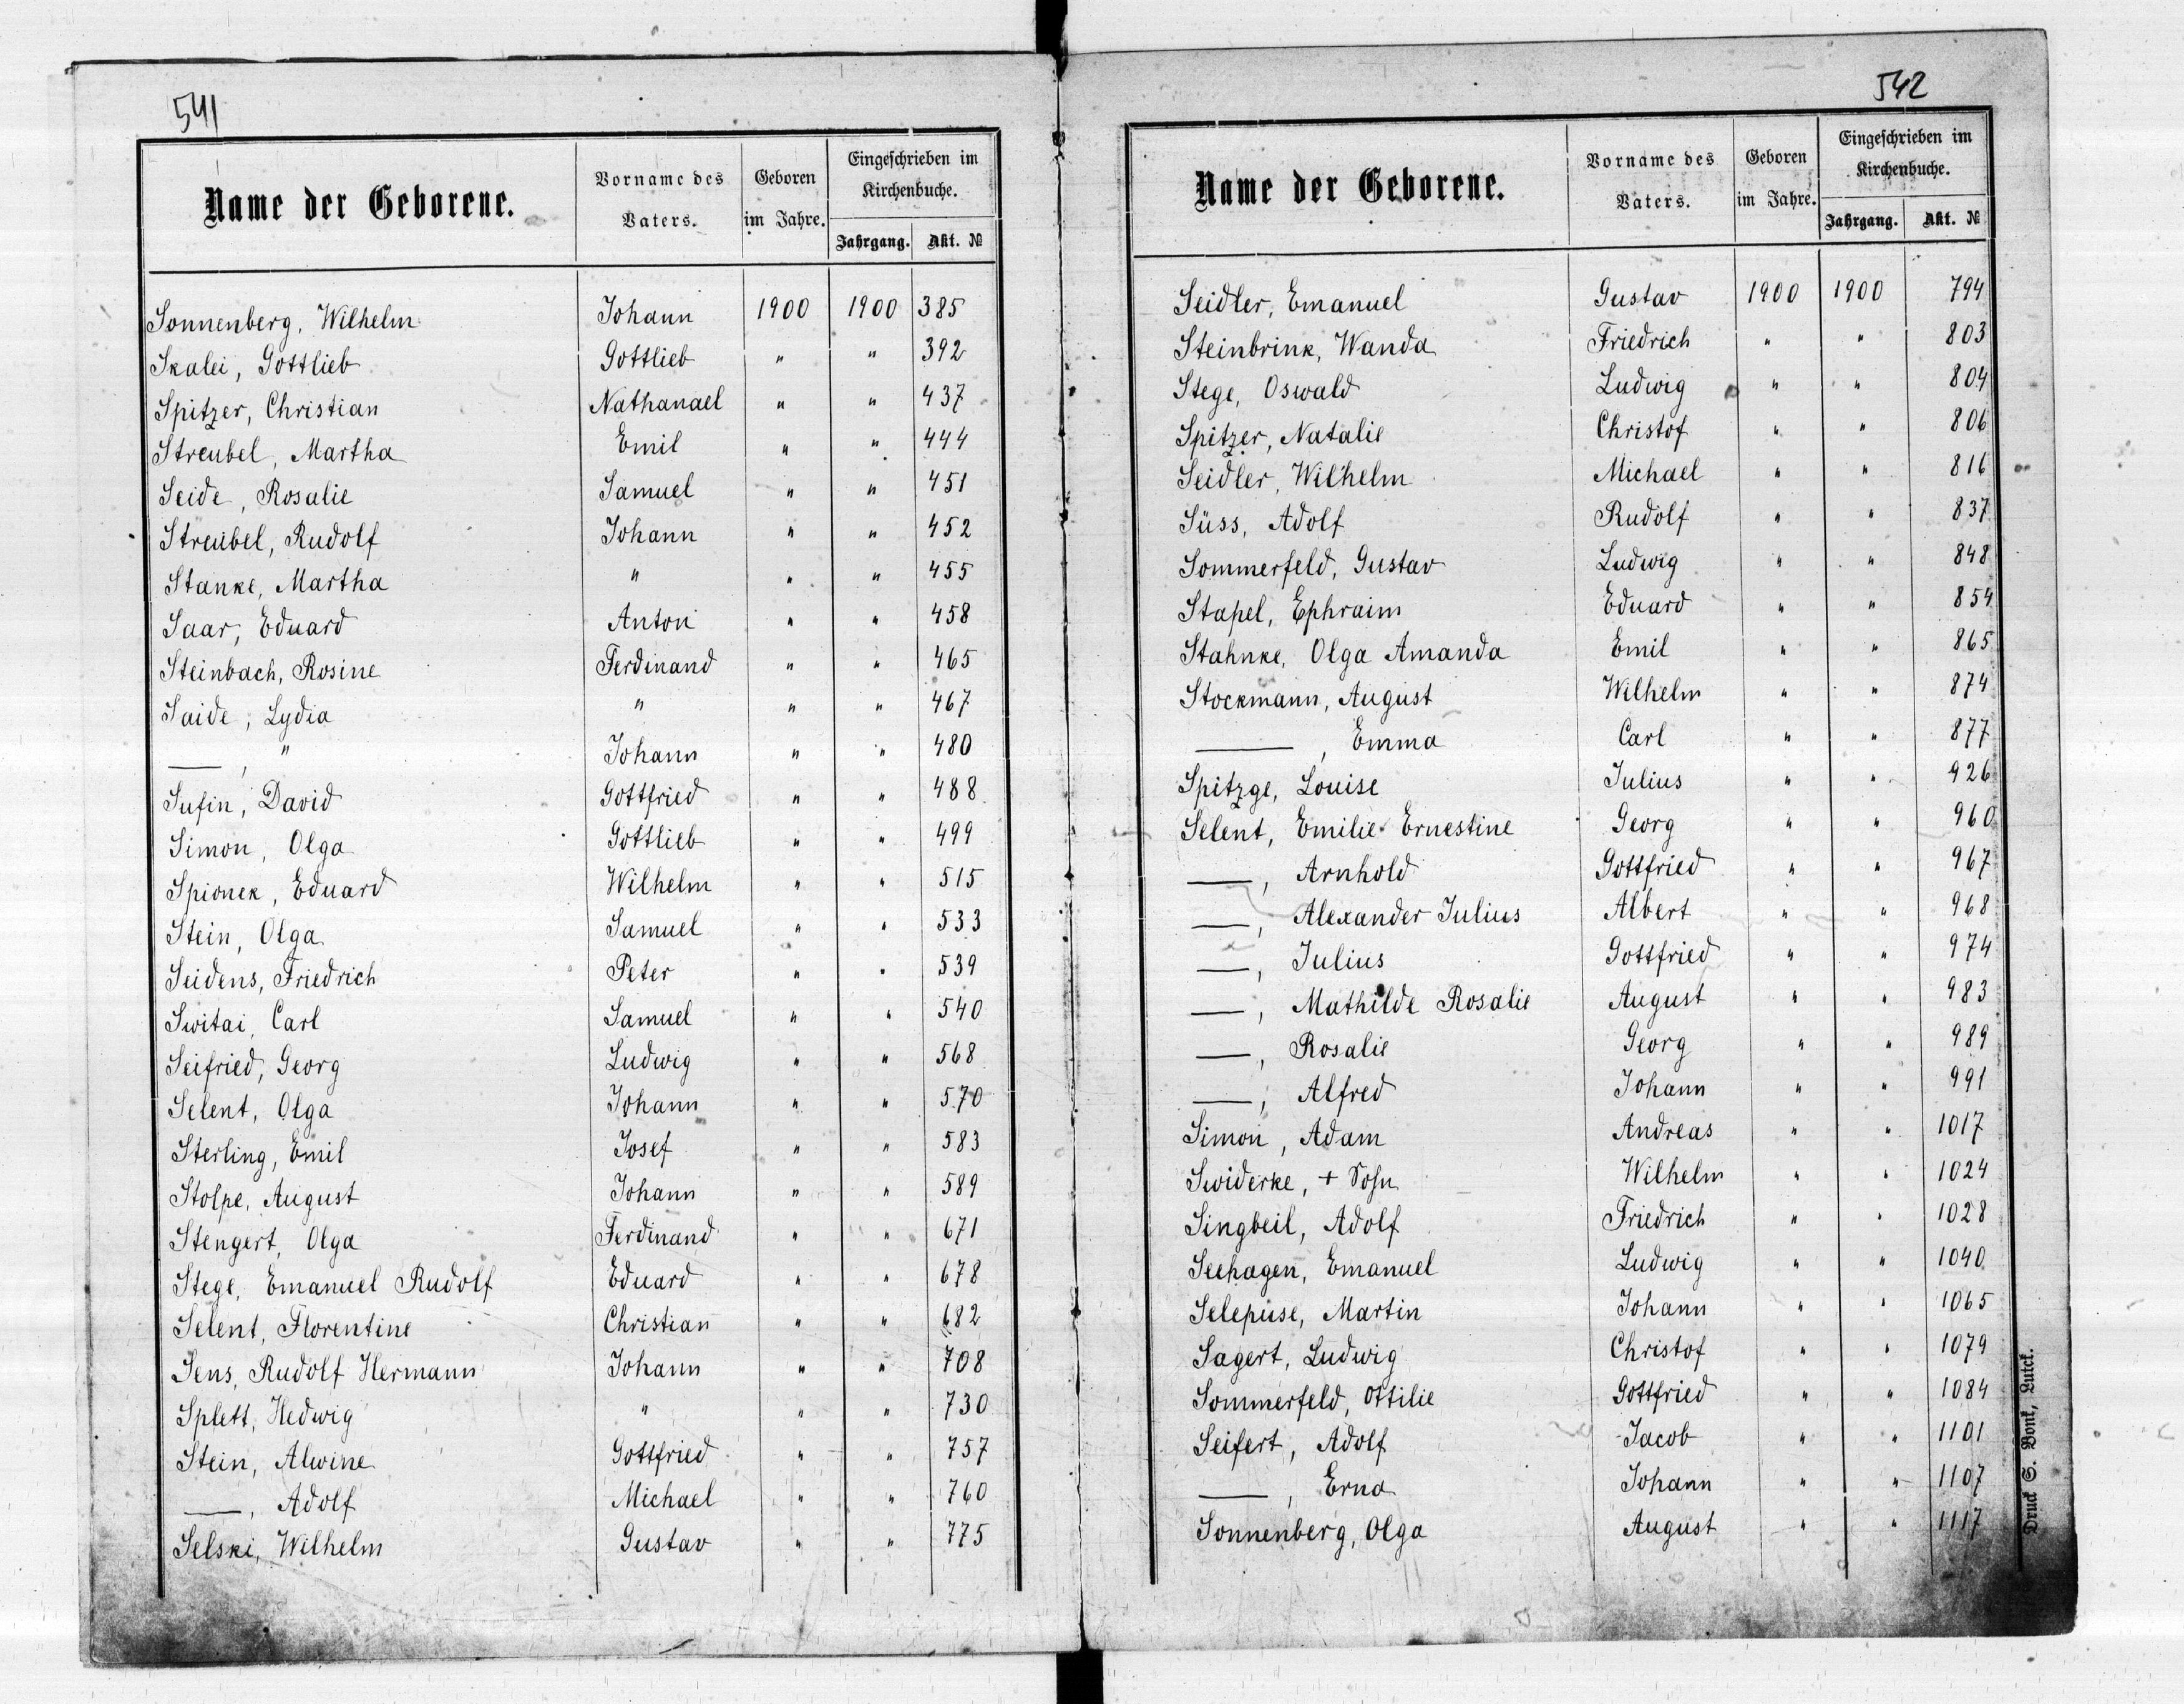 541
Name der Geborene. Vorname des Vaters. Geboren im Jahre. Eingeschrieben im Kirchenbuche. Jahrgang. Akt. №
Sonnenberg, Wilhelm Johann 1900 1900 385
Skalei, Gottlieb Gottlieb " " 392
Spitzer, Christian Nathanael " " 437
Streubel, Martha Emil " " 444
Seide, Rosalie Samuel " " 451
Streubel, Rudolf Johann " " 452
Stanke, Martha " " " 455
Saar, Eduard Anton " " 458
Steinbach, Rosine Ferdinand " " 465
Saide, Lydia " " " 467
—, " Johann " " 480
Sufin, David Gottfried " " 488
Simon, Olga Gottlieb " " 499
Spionek, Eduard Wilhelm " " 515
Stein, Olga Samuel " " 533
Seidens, Friedrich Peter " " 539
Switai, Carl Samuel " " 540
Seifried, Georg Ludwig " " 568
Selent, Olga Johann " " 570
Sterling, Emil Josef " " 583
Stolpe, August Johann " " 589
Stengert, Olga Ferdinand " " 671
Stege, Emanuel Rudolf Eduard " " 678
Selent, Florentine Christian " " 682
Sens, Rudolf Hermann Johann " " 708
Splett, Hedwig " " " 730
Stein, Alwine Gottfried " " 757
—, Adolf Michael " " 760
Selski, Wilhelm Gustav " " 775
542
Name der Geborene. Vorname des Vaters. Geboren im Jahre. Eingeschrieben im Kirchenbuche. Jahrgang. Akt. №
Seidler, Emanuel Gustav 1900 1900 794
Steinbrink, Wanda Friedrich " " 803
Stege, Oswald Ludwig " " 804
Spitzer, Natalie Christof " " 806
Seidler, Wilhelm Michael " " 816
Süss, Adolf Rudolf " " 837
Sommerfeld, Gustav Ludwig " " 848
Stapel, Ephraim Eduard " " 854
Stahnke, Olga Amanda Emil " " 865
Stockmann, August Wilhelm " " 874
—, Emma Carl " " 877
Spitzge, Louise Julius " " 926
Selent, Emilie Ernestine Georg " " 960
—, Arnhold Gottfried " " 967
—, Alexander Julius Albert " " 968
—, Julius Gottfried " " 974
—, Mathilde Rosalie August " " 983
—, Rosalie Georg " " 989
—, Alfred Johann " " 991
Simon, Adam Andreas " " 1017
Swiderke, + Sohn Wilhelm " " 1024
Singbeil, Adolf Friedrich " " 1028
Seehagen, Emanuel Ludwig " " 1040
Selepuse, Martin Johann " " 1065
Sagert, Ludwig Christof " " 1079
Sommerfeld, Ottilie Gottfried " " 1084
Seifert, Adolf Jacob " " 1101
—, Erna Johann " " 1107
Sonnenberg, Olga August " " 1117
Druck S. Bonk, Lutck.